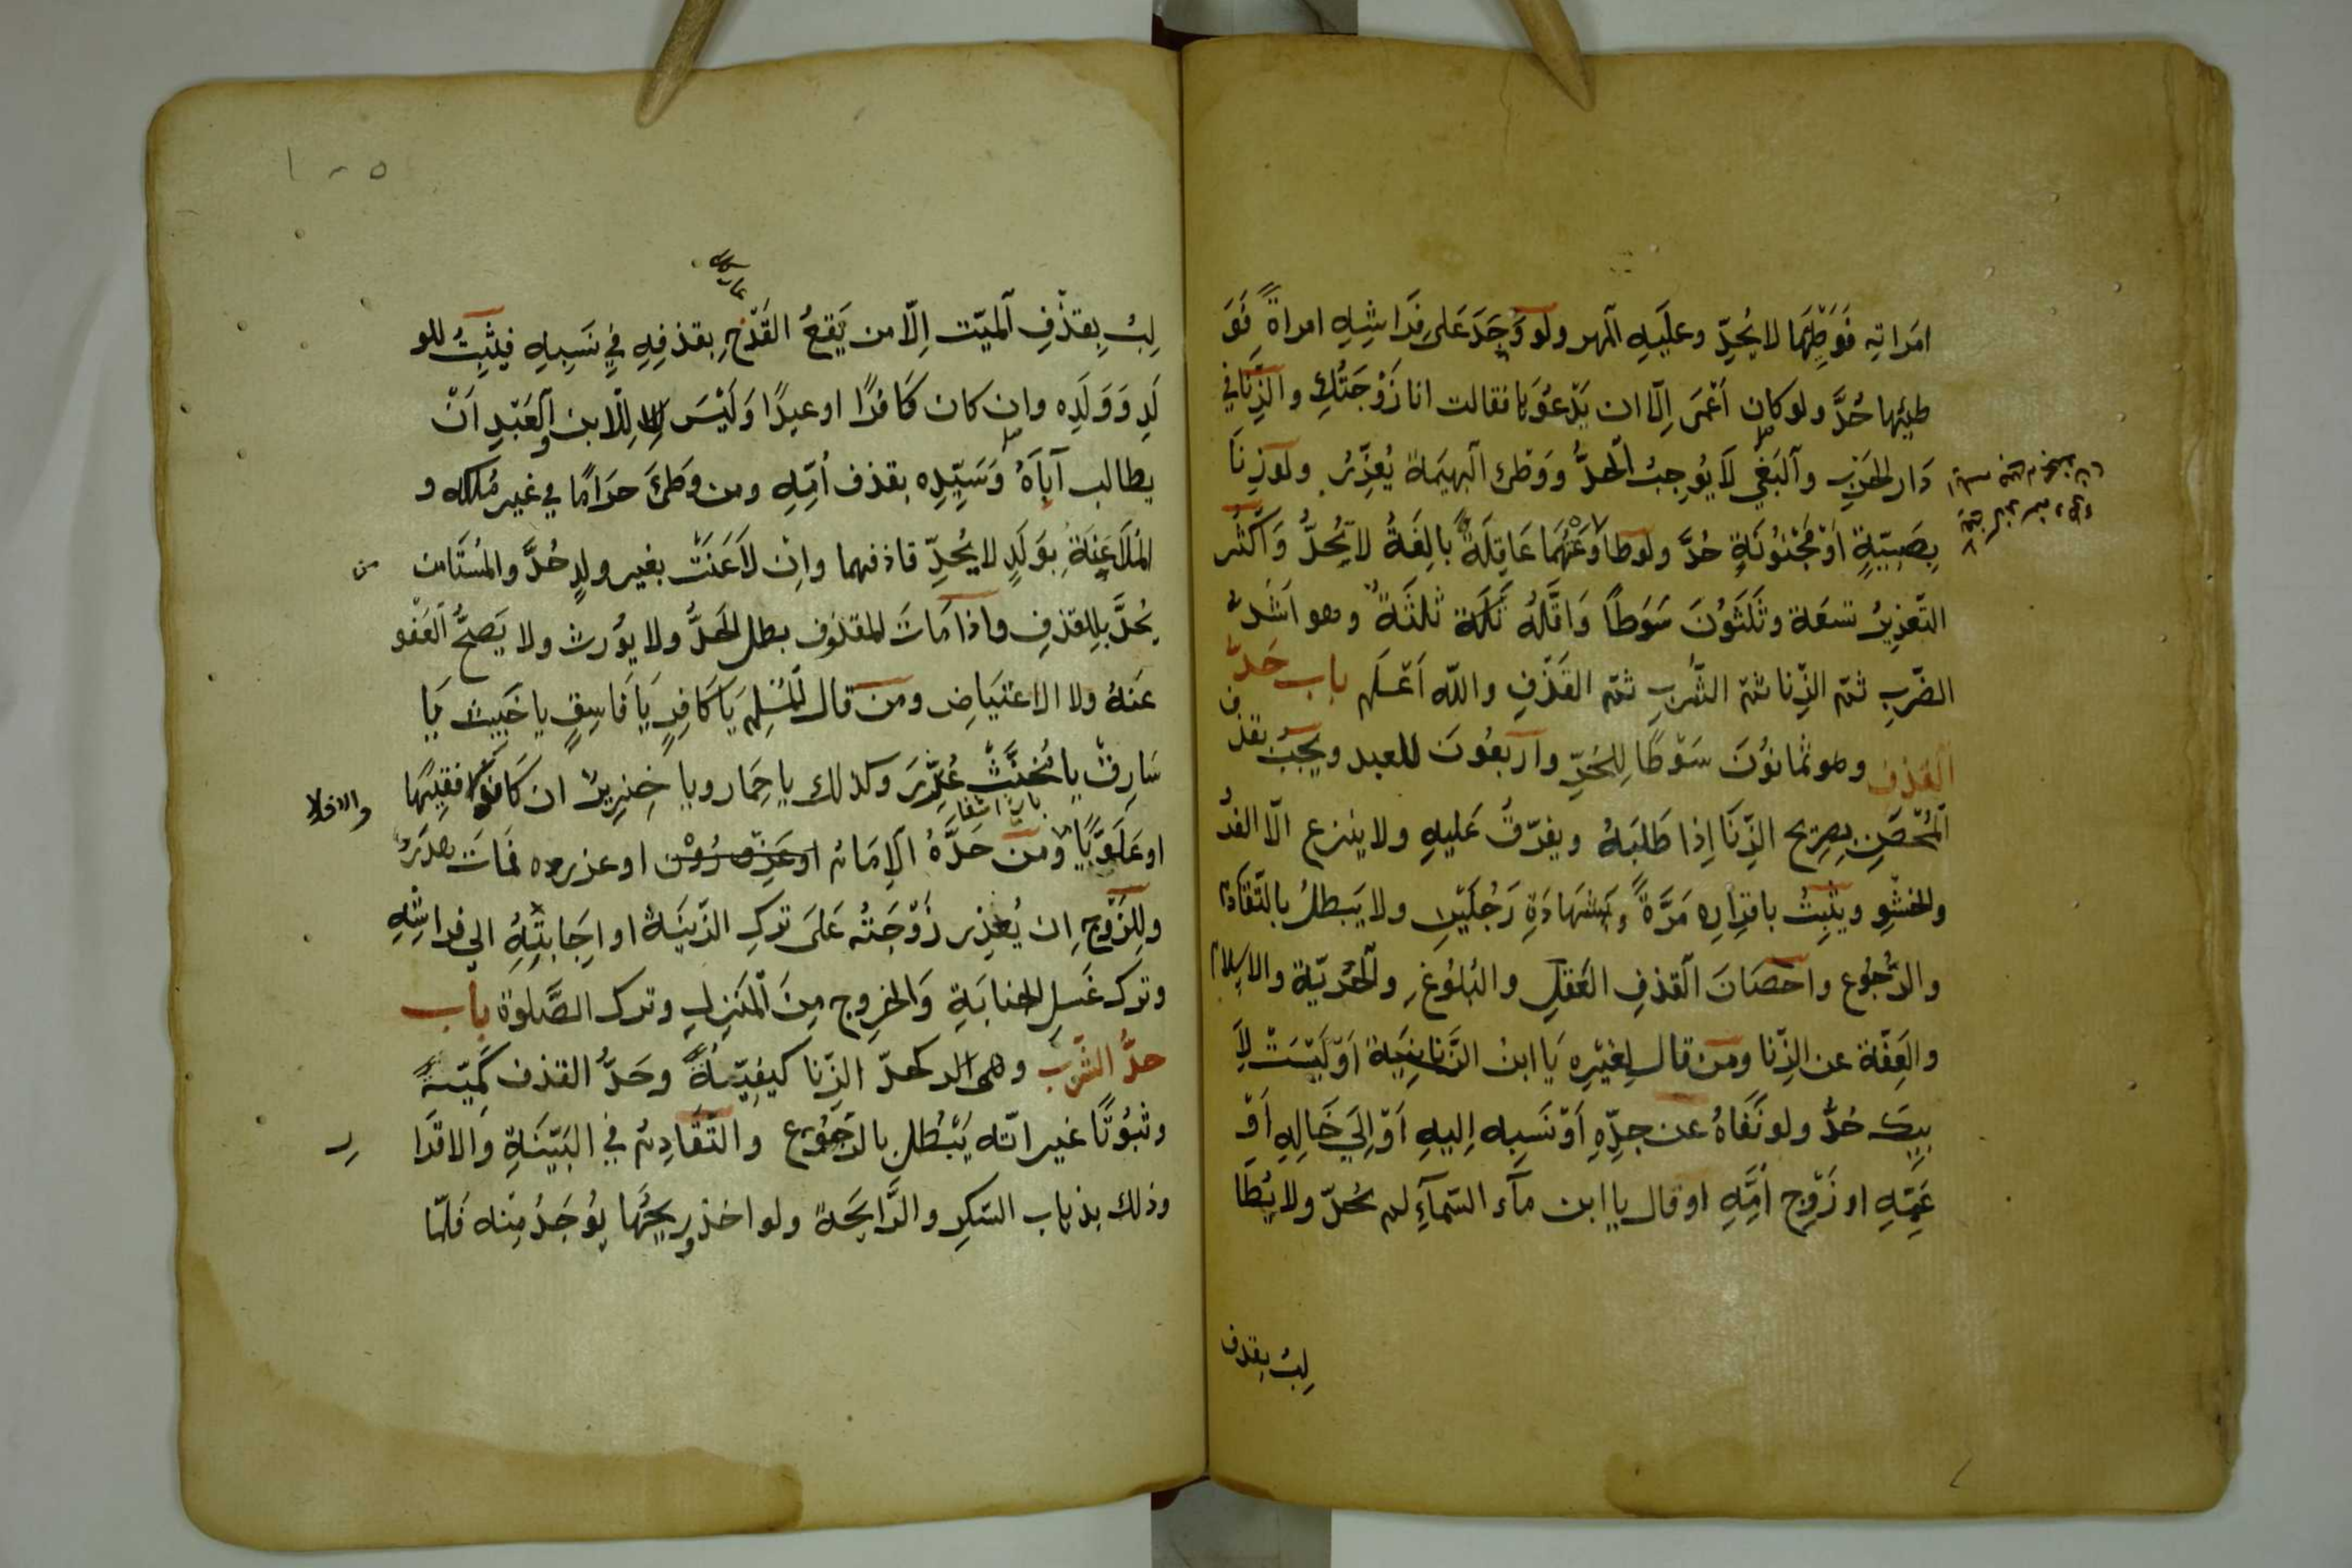 امراته فَوَطِئَهَا لا يُحدّ وعليه المهر ولو وَجَدَ عَلى فراشِهِ امراةً فَوَ
طيئها حُدَّ ولو كان اعْمَى اِلّا ان يَدْعُوَهَا فقالت انا زَوْجَتُكِ والزِّنَا في
دَار الحَرْبِ والبَغْيِ لَا يُوجِبُ الْحَدَّ وَوَطْئ البَهِيمَةِ يُعَزّرُ ولو زِنَا
بِصَبِيّةٍ اَوْ مَجْنُوُنَةٍ حُدَّ ولو طاوَعَتْهُمَا عَاقِلَةٌ بالِغَةٌ لا تُحدُّ وَاَكْثَر
التّعْزِيرُ تسعَة وثَلَثُونَ سَوَطًا وَاقَلّهُ ثَلثَةٌ وهو اَشَدّ
الضّربِ ثمّ الزّنا ثمّ الشُّربِ ثمّ القَذْفِ واللّه اَعْلَم باب حَدّ
القذف وهو ثمانُونَ سَوْطًا لِلحُرّ واربَعُونَ للعبد ويجبُ بقذف
المُحْصَنِ بِصِريح الزّنَا اِذا طَلبَهُ ويفرّقُ عَليهِ ولا ينزع الّا الفرُ
والحَشْوِ ويثبِتُ باقرارِه مَرّةً وبشهادَةِ رَجُلَيْنِ ولا يَبطلُ بالتّقادم
والرُّجُوع واحصَانَ القذفِ العَقلِ والبُلوُغِ والحُريّة والاسلام
والعِفّة عن الزّنا ومن قال لِغيْرِه يَا ابنُ الزّانِيَة اَوْ لَيْسَتْ لِاَ
بيك حُدُّ ولو نَفَاهُ عن جدّهِ اَوْ نَسَبه اِليهِ اَوْ اِلَى خَالِهِ اَوْ
عَمّهِ او زَوْجِ اُمّهِ او قال يا ابن مآء السّمآءِ لم يُحدّ ولا يُطَا
لبُ بقذف
١٠٥
لِبُ بِقذْفِ الميّت اِلّا من يَقعُ القَدْحُ بقذفِهِ في نَسَبِهِ فيثبِتُ للو
لَدِ وَوَلَدِه وان كان كَافرًا او عبدًا وَلَيْسَ لِلابن والعَبْدِ اَنْ
يطالب آباَهُ وَسَيّدِه بقذف اُمّهِ ومن وَطئَ حرَامًا في غير مُلكه و
المُلَاعِنَةُ بِوَلَدٍ لا يُحدّ قاذفهما وان لَاعَنَتْ بغير ولدٍ حُدَّ والمُسْتَامن
يُحدَّ بالقذفِ واذا مَاتَ المقذوف بطل الحَدُّ ولا يوُرث ولا يَصحُّ العَفْو
عَنهُ ولا الاعتيَاضِ ومن قال لِمُسْلِمٍ يَا كَافِرٍ يَا فَاسِقٍ يا خَبيث يَا
سَارِقٌ يا مُخنّثٌ عُزّرَ وكذلك يا حِمَار ويا خِنزِيرٌ ان كَانَ فقيهًا
والا فلا
او عَلَوِيًّا ومن حَدَّهُ الاِمَامُ او عزره فمَاتَ هدَرَ
وللِزَّوْجِ ان يُعَزر زَوْجَتُه عَلَى تركِ الزّينَة او اِجَابتِهِ الى فراشِهِ
وترك غَسلِ الجنابَةِ وَالخروج مِنَ المَنزِلِ وترك الصَّلوة باب
حدُّ الشّرب وهى كحدّ الزّنا كيفِيّةً وحَدُّ القذف كَميّةً
وثبُوُتًا غير انّه يَبْطُل بالرّجُوع والتّقَادِمُ في البَيّنَةِ وَالاقرَا
ر
وذلك بذهاب السّكرِ والرَّايحَة ولو اخذ وريحُهَا يوُجَدُ مِنْه فَلمّا